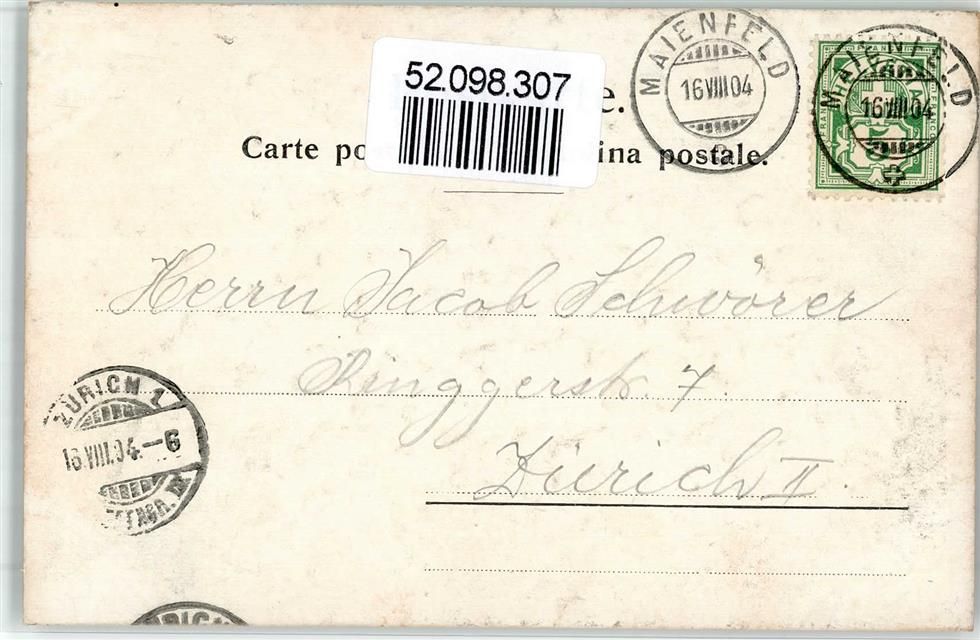 MAIENFELD
16 VIII 04
MAIENFELD
16 VIII 04
52.098.307
e.
Carte po
ina postale.
Herrn Jacob Schwörer
Ringgerstr. 7.
Zürich II.
ZÜRICH 1
16.VIII.04.–6